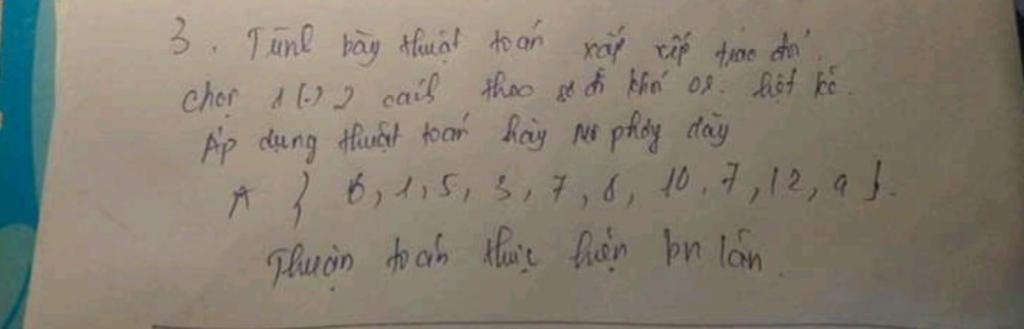 3. Trình bày thuật toán xắp xếp tráo đổi.
chọn 1 (-) 2 cách theo sơ đồ khối or liệt kê.
Áp dụng thuật toán hãy mô phỏng dãy
A { 6, 1, 5, 3, 7, 8, 10, 7, 12, 9 }.
Thuận toán thực hiện bn lần.